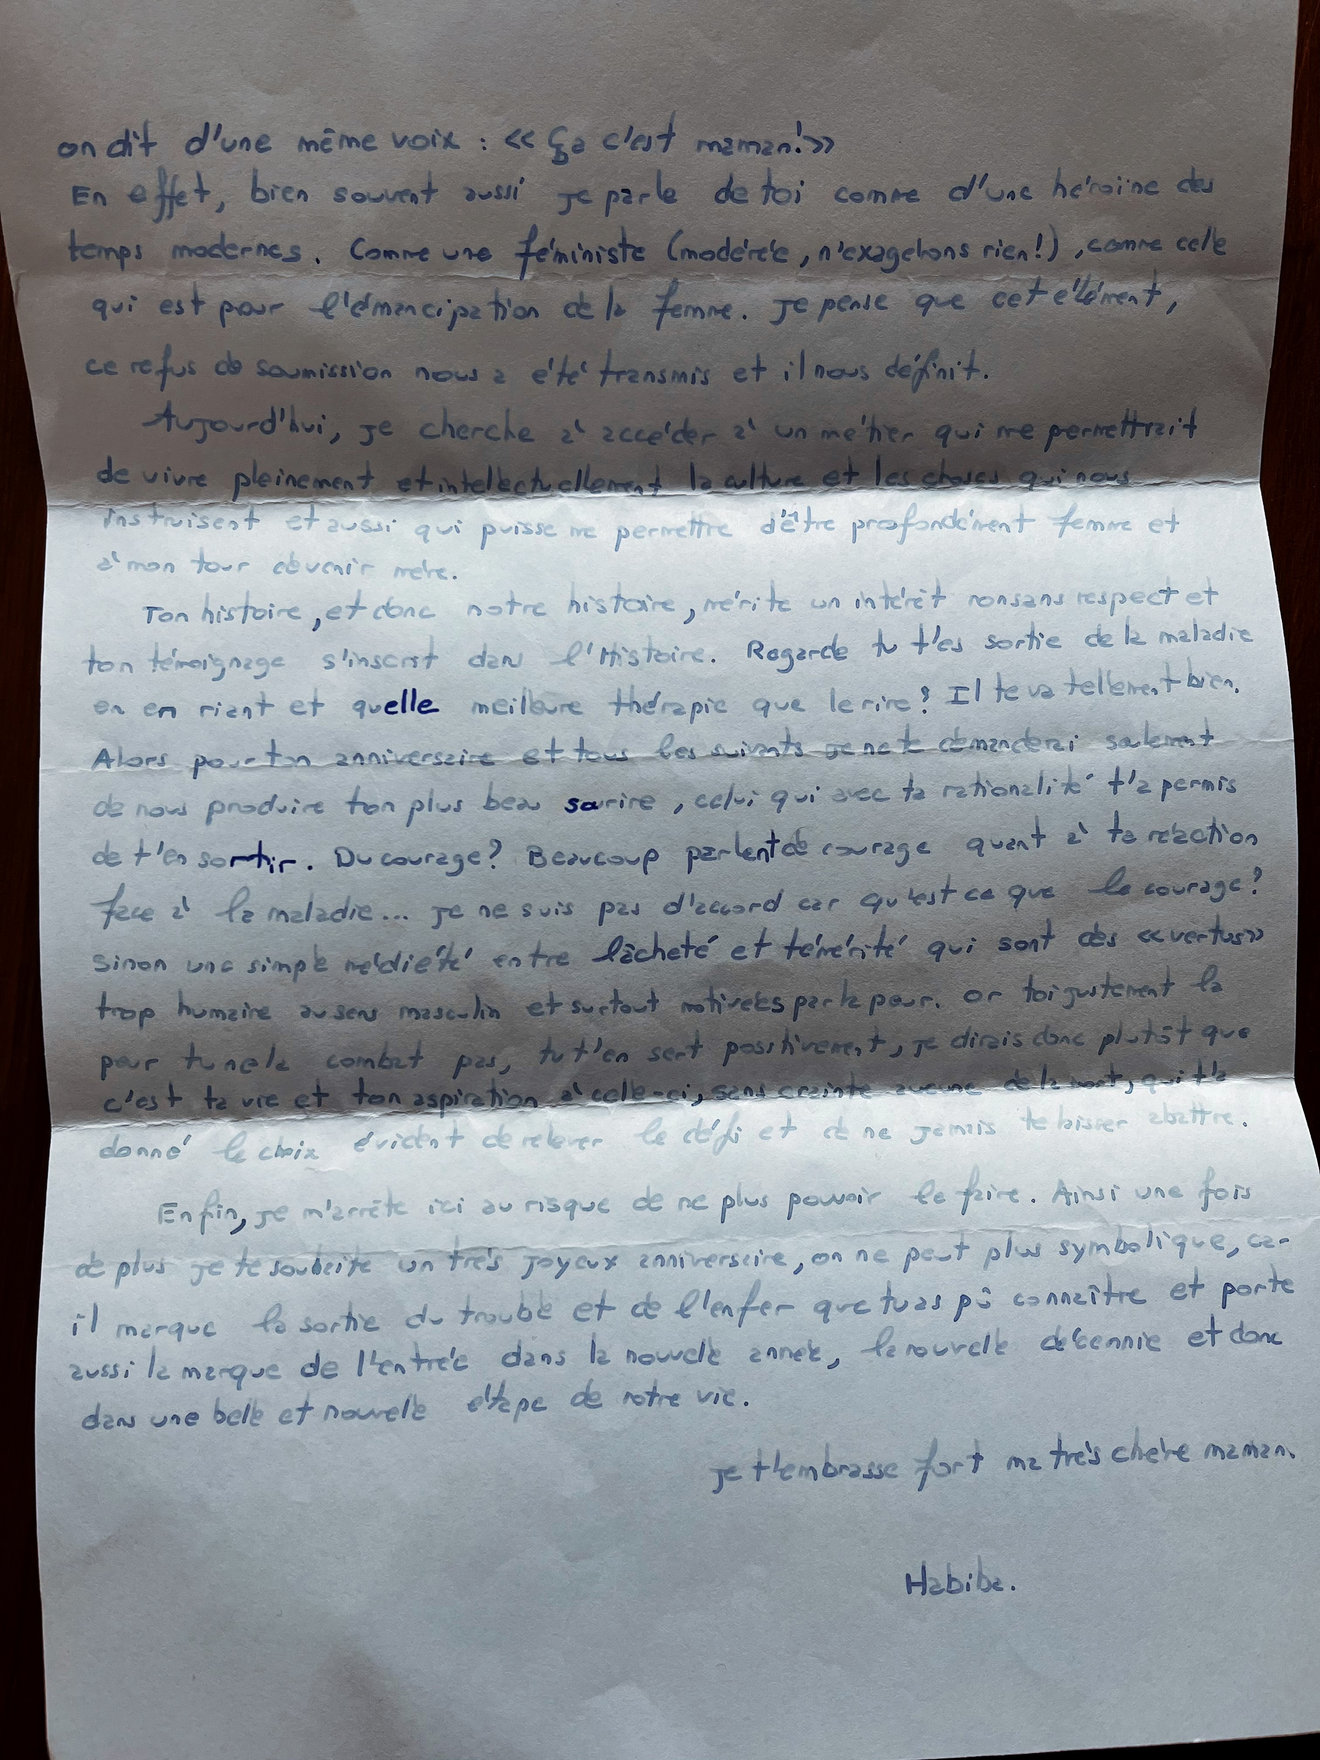 on dit d'une même voix : « Ça c'est maman!»
En effet, bien souvent aussi je parle de toi comme d'une héroïne des
temps modernes. Comme une féministe (modérée, n'exagérons rien!), comme celle
qui est pour l'émancipation de la femme. Je pense que cet élément,
ce refus de soumission nous a été transmis et il nous définit.
Aujourd'hui, je cherche à accéder à un métier qui me permettrait
de vivre pleinement et intellectuellement la culture et les choses qui nous
instruisent et aussi qui puisse me permettre d'être profondément femme et
à mon tour devenir mère.
Ton histoire, et donc notre histoire, mérite un intérêt non sans respect et
ton témoignage s'inscrit dans l'Histoire. Regarde tu t'es sortie de la maladie
en en riant et quelle meilleure thérapie que le rire? Il te va tellement bien.
Alors pour ton anniversaire et tous les suivants je ne te demanderai seulement
de nous produire ton plus beau sourire, celui qui avec ta rationalité t'a permis
de t'en sortir. Du courage? Beaucoup parlent de courage quant à ta réaction
face à la maladie... je ne suis pas d'accord car qu'est ce que le courage?
Sinon une simple médiété entre lâcheté et témérité qui sont des «vertus»
trop humaine au sens masculin et surtout motivées par la peur. Or toi justement la
peur tu ne la combat pas, tu t'en sert positivement, je dirais donc plutôt que
c'est ta vie et ton aspiration à celle-ci, sans crainte aucune de la mort, qui t'a
donné le choix évident de relever le défi et de ne jamais te laisser abattre.
Enfin, je m'arrête ici au risque de ne plus pouvoir le faire. Ainsi une fois
de plus je te souhaite un très joyeux anniversaire, on ne peut plus symbolique, car
il marque la sortie du trouble et de l'enfer que tu as pû connaître et porte
aussi la marque de l'entrée dans la nouvelle année, la nouvelle décennie et donc
dans une belle et nouvelle étape de notre vie.
Je t'embrasse fort ma très chère maman.
Habiba.